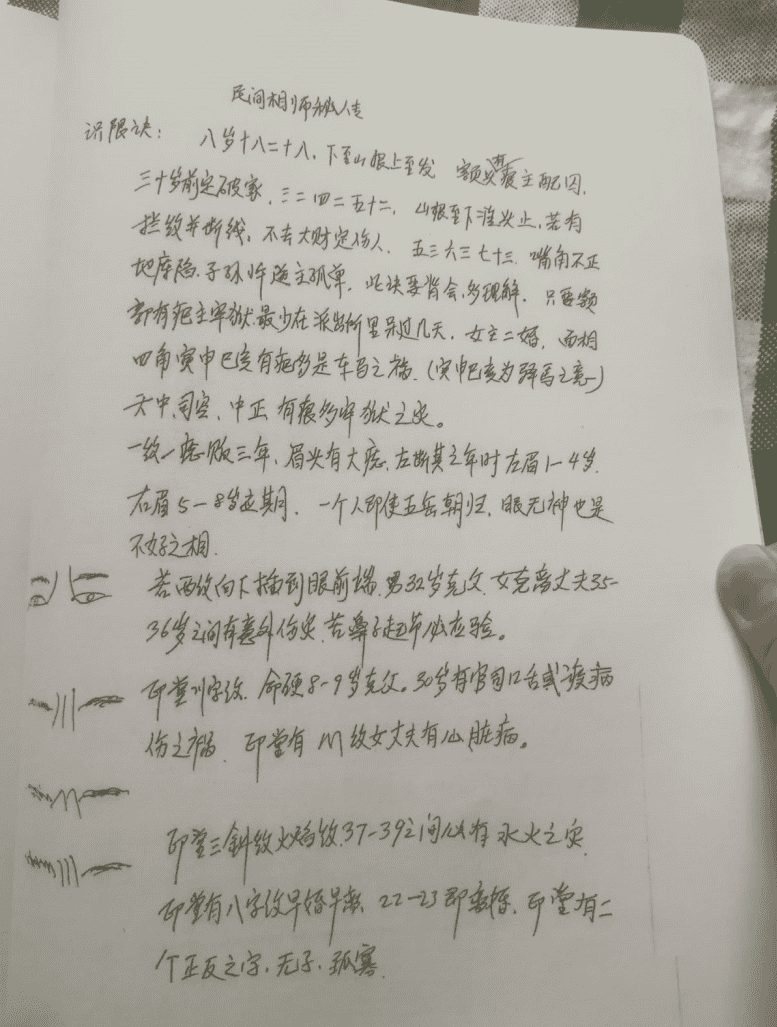 民间相师秘传
识限诀: 八岁十八二十八, 下至山根上至发 额头有痕主配囚,
三十岁前定破家, 三二四二五十二, 山根至下准头止, 若有
拦纹并断线, 不去大财定伤人, 五三六三七十三, 嘴角不正
地库陷, 子孙忤逆主孤单, 此诀要背会, 多理解, 只要额
部有疤主牢狱, 最少在派出所里呆过几天, 女主二婚, 面相
四角寅申巳亥有疤多是车马之祸, (寅申巳亥为驿马之意)
天中, 司空, 中正, 有痕多牢狱之灾。
一纹一痣败三年, 眉头有大痣, 左断其之年时左眉1-4岁,
右眉5-8岁应其月, 一个人即使五岳朝归, 眼无神也是
不好之相.
若两纹向下插到眼前端, 男32岁克父, 女克离丈夫35-
36岁之间有意外伤灾, 若鼻子起节必应验。
印堂川字纹, 命硬8-9岁克父。30岁有官司口舌或疾病
伤之祸, 印堂有 M 纹女丈夫有心脏病。
印堂三斜纹火焰纹, 37-39之间必有水火之灾
印堂有八字纹早婚早离, 22-23即离婚, 印堂有二
个正反之字, 无子, 孤寡.